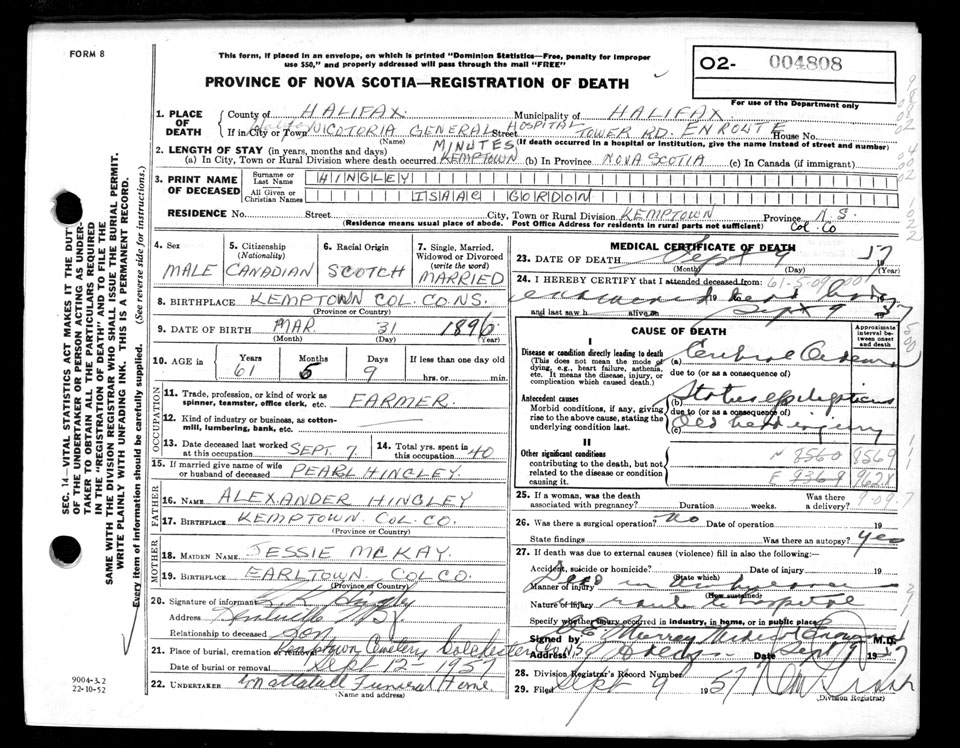 FORM 8
This form, if placed in an envelope, on which is printed "Dominion Statistics—Free, penalty for improper
use $50," and properly addressed will pass through the mail "FREE"
PROVINCE OF NOVA SCOTIA—REGISTRATION OF DEATH
O2- 004808
For use of the Department only
SEC. 14—VITAL STATISTICS ACT MAKES IT THE DUTY
OF THE UNDERTAKER OR PERSON ACTING AS UNDER-
TAKER TO OBTAIN ALL THE PARTICULARS REQUIRED
IN THE "REGISTRATION OF DEATH" AND TO FILE THE
SAME WITH THE DIVISION REGISTRAR WHO SHALL ISSUE THE BURIAL PERMIT.
WRITE PLAINLY WITH UNFADING INK. THIS IS A PERMANENT RECORD.
Every item of information should be carefully supplied. (See reverse side for instructions.)
1. PLACE OF DEATH
County of HALIFAX Municipality of HALIFAX
If in City or Town VICOTORIA GENERAL HOSPITAL Street TOWER RD. ENROUTE House No.
(Name) (If death occurred in a hospital or institution, give the name instead of street and number)
2. LENGTH OF STAY (in years, months and days) MINUTES
(a) In City, Town or Rural Division where death occurred KEMPTOWN (b) In Province NOVA SCOTIA (c) In Canada (if immigrant)
3. PRINT NAME OF DECEASED
Surname or Last Name HINGLEY
All Given or Christian Names ISAAC GORDON
RESIDENCE No. Street City, Town or Rural Division KEMPTOWN Province N.S.
(Residence means usual place of abode. Post Office Address for residents in rural parts not sufficient) Col. Co
4. Sex MALE
5. Citizenship (Nationality) CANADIAN
6. Racial Origin SCOTCH
7. Single, Married, Widowed or Divorced (write the word) MARRIED
8. BIRTHPLACE KEMPTOWN COL. CO. NS.
(Province or Country)
9. DATE OF BIRTH MAR 31 1896
(Month) (Day) (Year)
10. AGE in Years 61 Months 5 Days 9 If less than one day old hrs. or min.
OCCUPATION
11. Trade, profession, or kind of work as spinner, teamster, office clerk, etc. FARMER
12. Kind of industry or business, as cotton-mill, lumbering, bank, etc.
13. Date deceased last worked at this occupation SEPT. 7
14. Total yrs. spent in this occupation 40
15. If married give name of wife or husband of deceased PEARL HINGLEY
FATHER
16. NAME ALEXANDER HINGLEY
17. BIRTHPLACE KEMPTOWN COL. CO.
(Province or Country)
MOTHER
18. MAIDEN NAME JESSIE MCKAY.
19. BIRTHPLACE EARLTOWN COL CO.
(Province or Country)
20. Signature of informant Hingley
Address
Relationship to deceased Son
21. Place of burial, cremation or removal Kemptown Cemetery Colchester Co N.S
Date of burial or removal Sept 12 - 1957
22. UNDERTAKER Mattatall Funeral Home
(Name and address)
9004-3.2
22-10-52
MEDICAL CERTIFICATE OF DEATH
23. DATE OF DEATH Sept 9 1957
(Month) (Day) (Year)
24. I HEREBY CERTIFY that I attended deceased from:
examined dead body 19
and last saw h alive on Sept 9 1957
CAUSE OF DEATH
Approximate interval between onset and death
I
Disease or condition directly leading to death
(This does not mean the mode of dying, e.g., heart failure, asthenia, etc. It means the disease, injury, or complication which caused death.)
(a) Cerebral Oedema
due to (or as a consequence of)
Antecedent causes
Morbid conditions, if any, giving rise to the above cause, stating the underlying condition last.
Status epilepticus
due to (or as a consequence of)
(c) Old head injury
II
Other significant conditions contributing to the death, but not related to the disease or condition causing it.
N 8560 8569
E 9369 9628
25. If a woman, was the death associated with pregnancy? Duration weeks. Was there a delivery?
26. Was there a surgical operation? no Date of operation 19
State findings Was there an autopsy? yes
27. If death was due to external causes (violence) fill in also the following:—
Accident, suicide or homicide? Date of injury 19
(State which)
Manner of injury Died in ambulance
(How sustained)
Nature of injury route to hospital
Specify whether injury occurred in industry, in home, or in public place
Signed by Murray Medical Exam M.D.
Address Date Sept 9 1957
28. Division Registrar's Record Number
29. Filed Sept 9 1957
(Division Registrar)